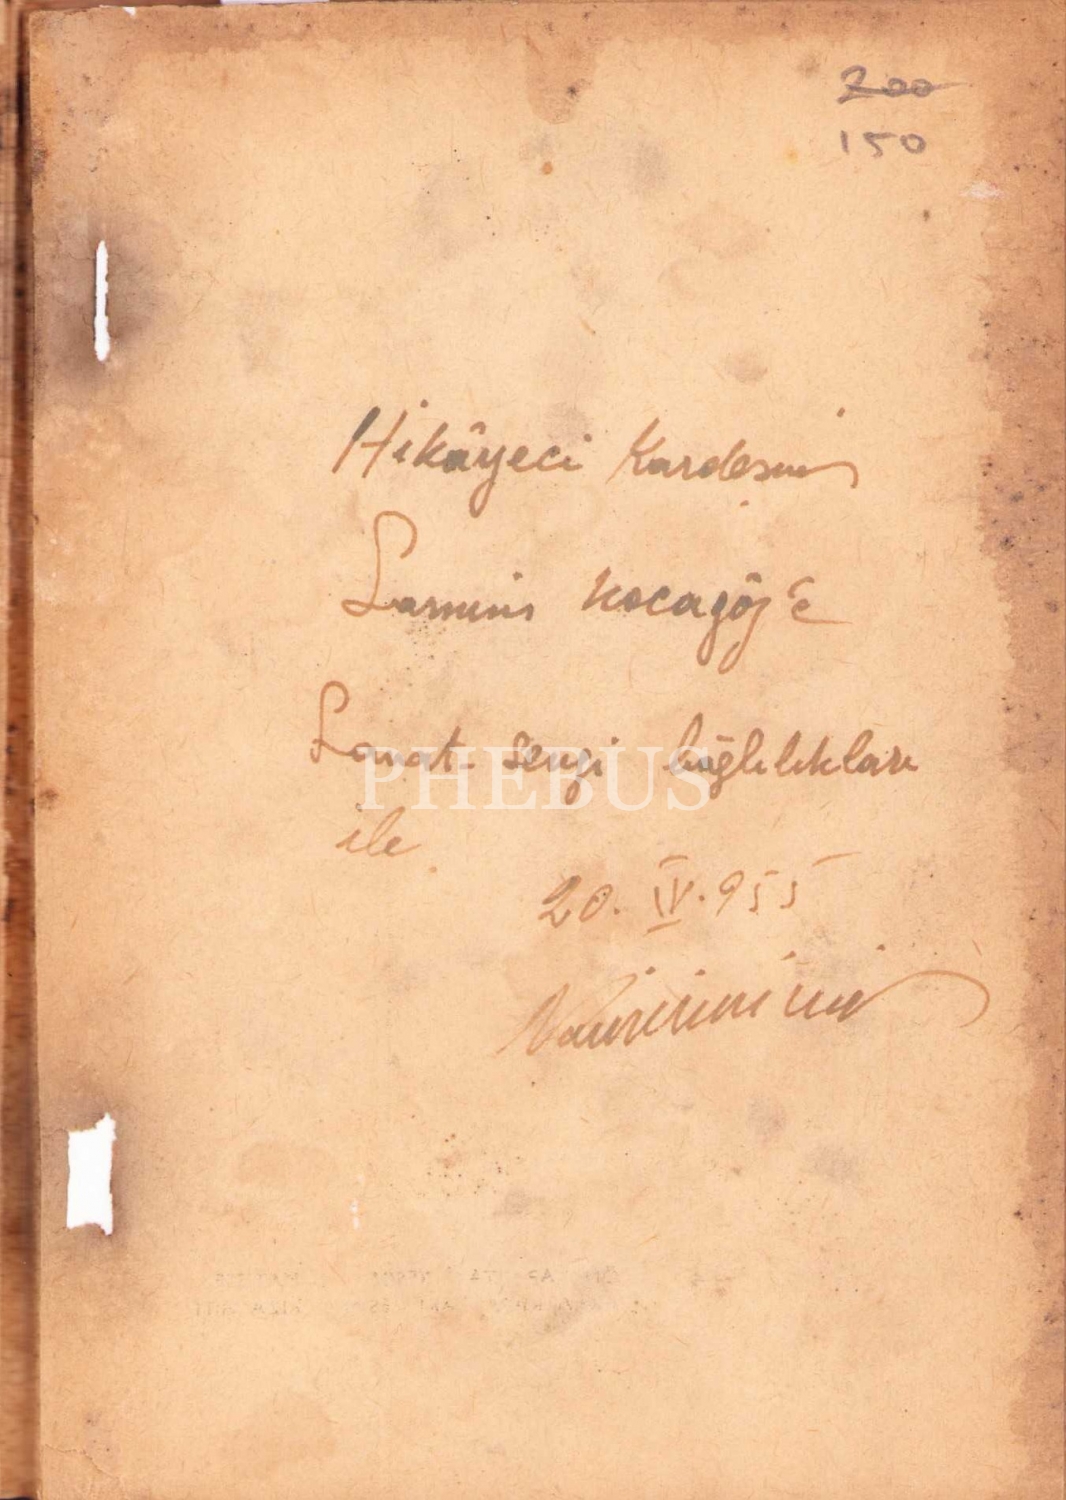 200
150
Hikâyeci Kardeşim
Samim Kocagöz'e
Sanat-sevgi bağlılıkları
PHEBUS
ile
20. IV. 955